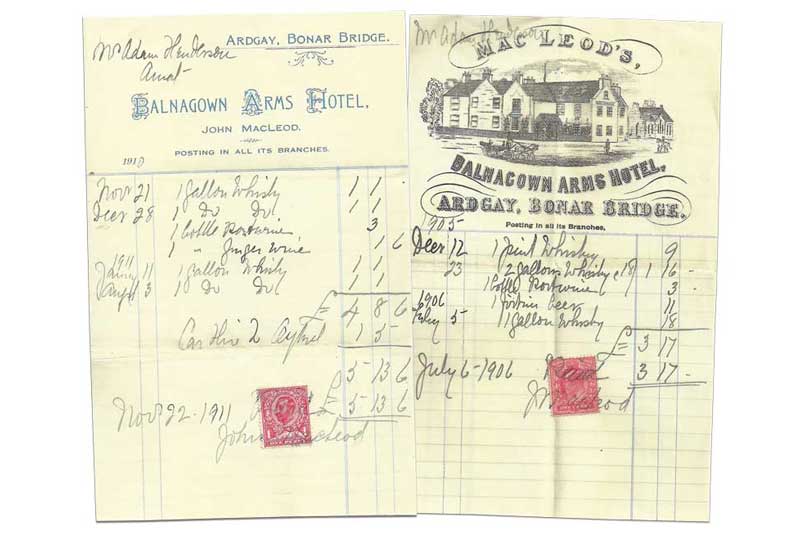 Mr Adam Henderson
Amat
ARDGAY, BONAR BRIDGE.
BALNAGOWN ARMS HOTEL,
JOHN MACLEOD.
POSTING IN ALL ITS BRANCHES.
1910
Nov 21 1 gallon Whisky 1 1
Decr 28 1 Do Do 1 1
1 bottle Portwine 3
1 " Ginger Wine 1 6
1911
11 1 gallon Whisky 1 1
3 1 Do Do 1 1
£ 4 8 6
Car Hire 1 5 -
5 13 6
£ 5 13 6
Nov 22 - 1911
John MacLeod
Mr Adam Henderson
MAC LEOD'S,
BALNAGOWN ARMS HOTEL,
ARDGAY, BONAR BRIDGE.
Posting in all its Branches,
1905-
Decr 12 1 Pint Whisky 9
23 2 gallons Whisky 18 1 16 -
1 bottle Portwine 3
1906 beer 11
5 1 gallon Whisky 18
£ 3 17
July 6 - 1906 Paid 3 17 -
J MacLeod